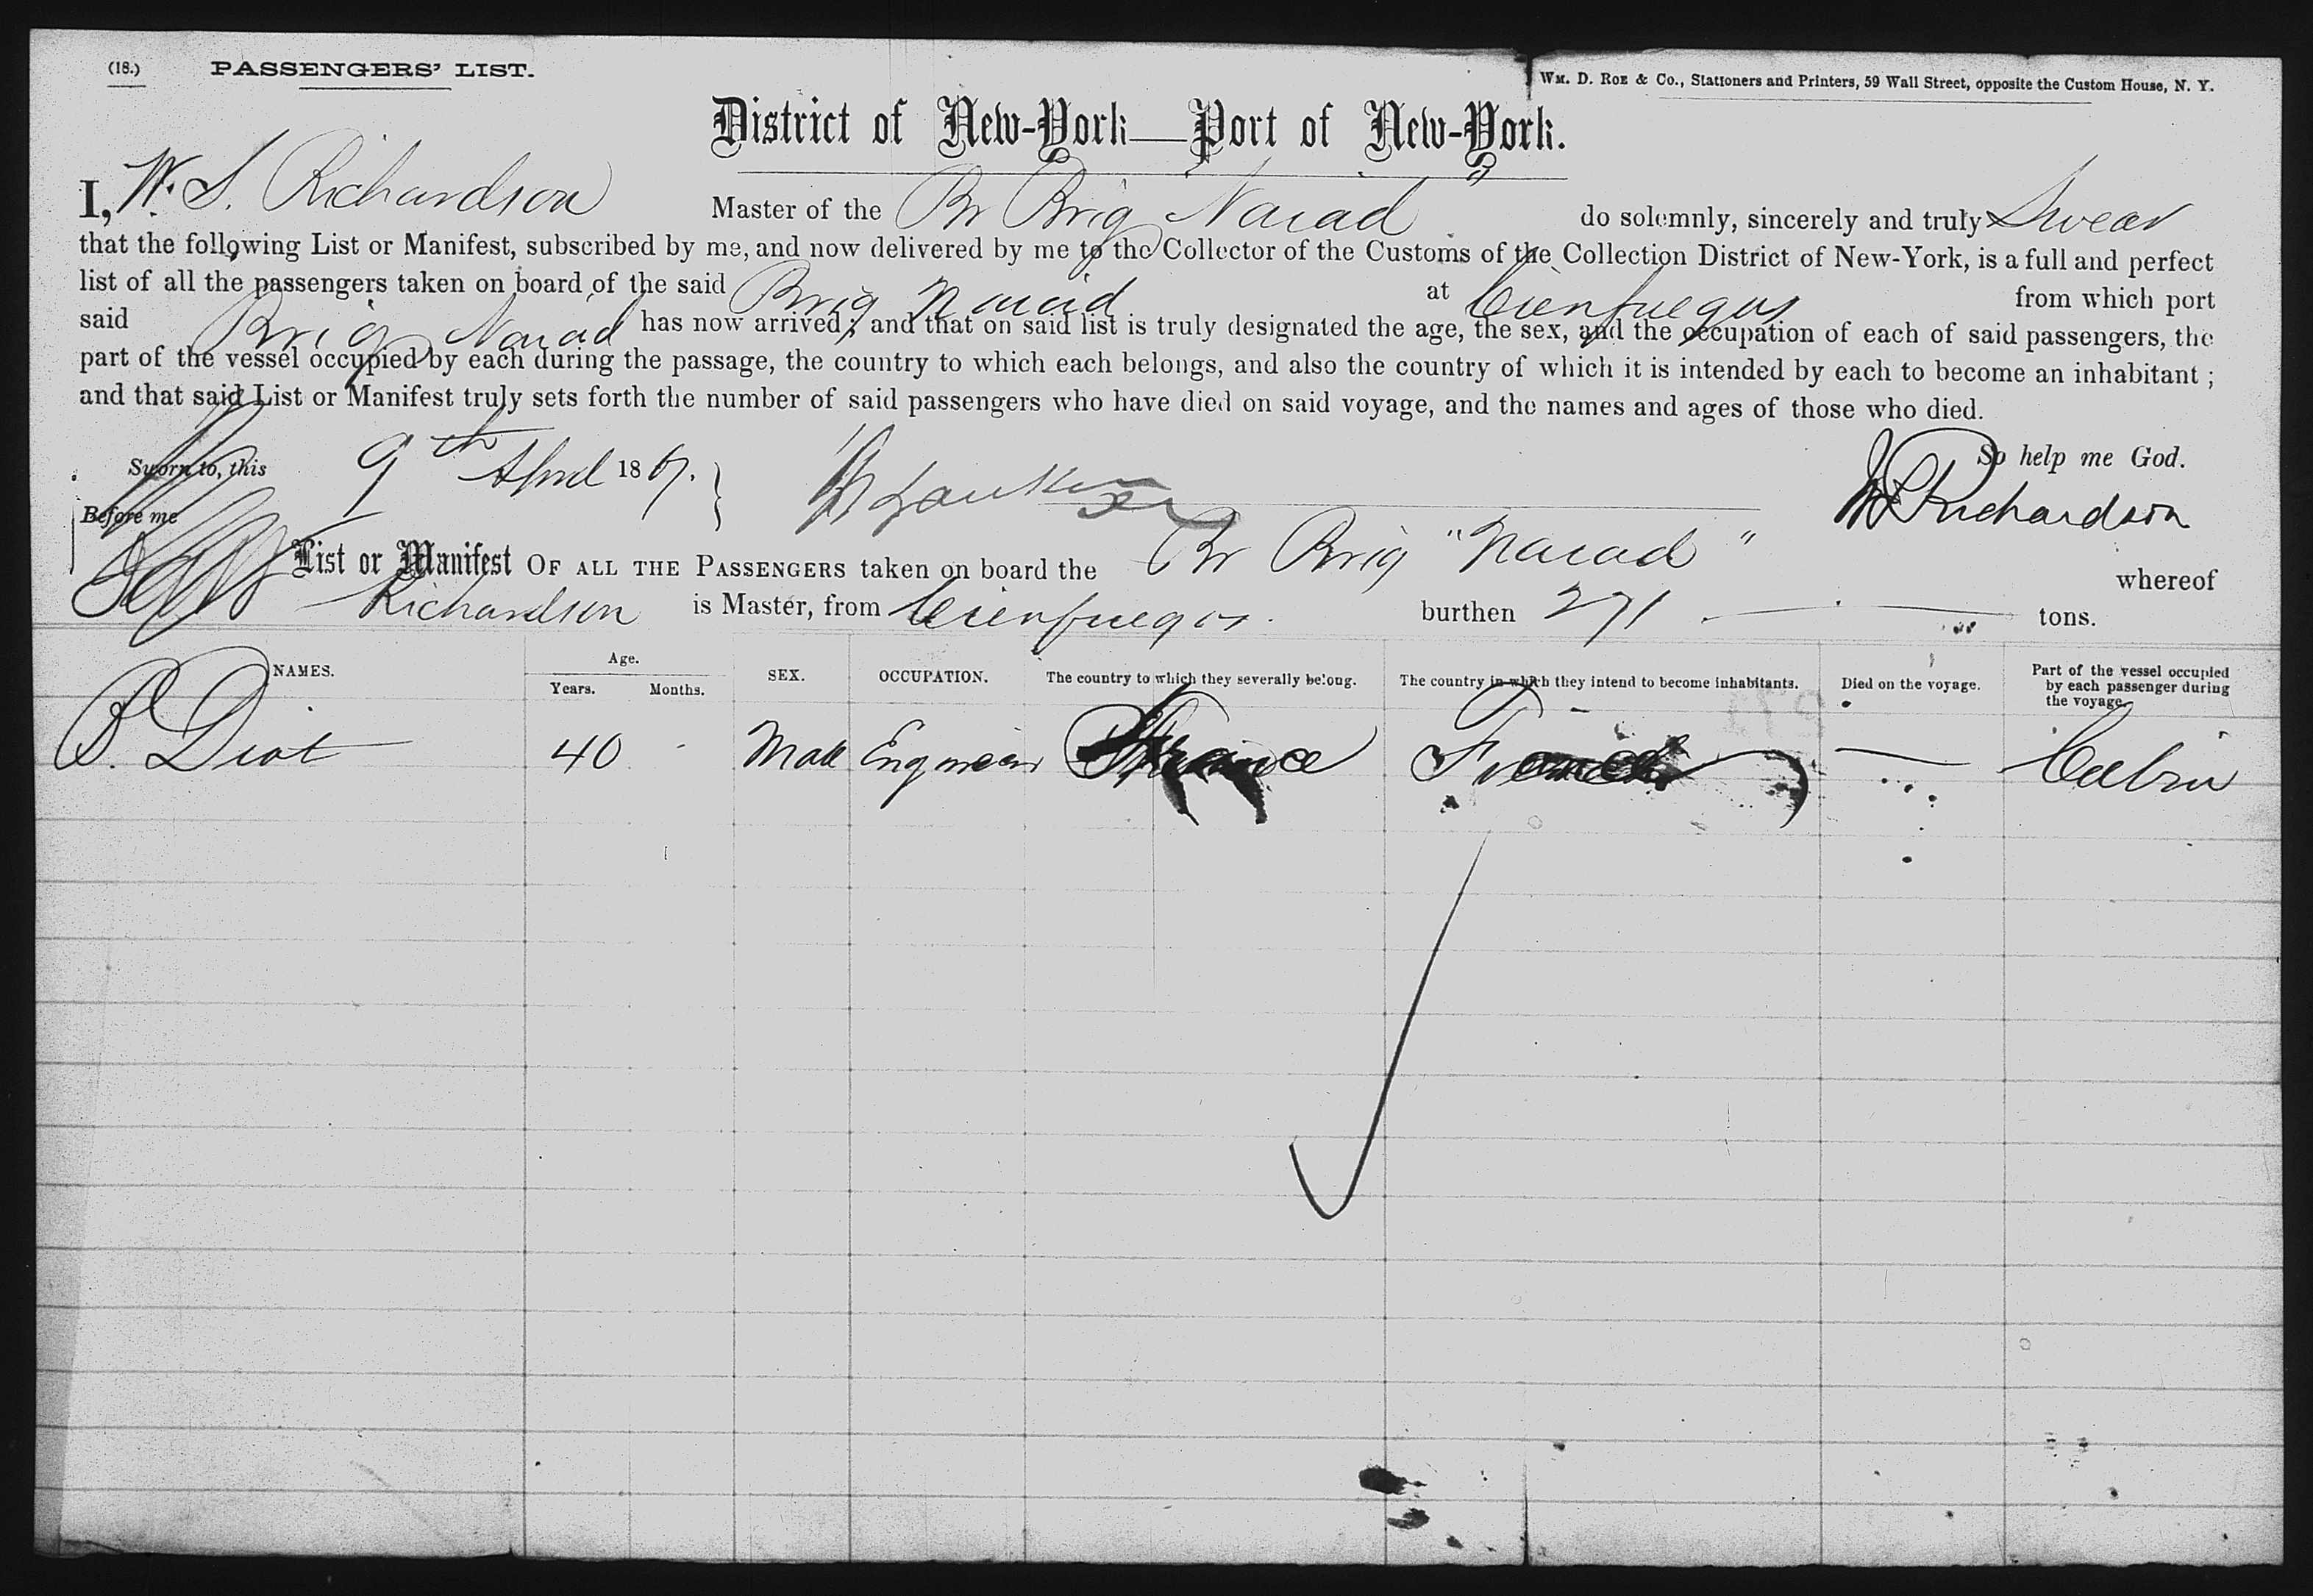 (18.) PASSENGERS' LIST.
Wm. D. Roe & Co., Stationers and Printers, 59 Wall Street, opposite the Custom House, N. Y.
District of New-York—Port of New-York.
I, W. S. Richardson Master of the Br Brig Naiad do solemnly, sincerely and truly Swear
that the following List or Manifest, subscribed by me, and now delivered by me to the Collector of the Customs of the Collection District of New-York, is a full and perfect
list of all the passengers taken on board of the said Brig Naiad at Cienfuegos from which port
said Brig Naiad has now arrived; and that on said list is truly designated the age, the sex, and the occupation of each of said passengers, the
part of the vessel occupied by each during the passage, the country to which each belongs, and also the country of which it is intended by each to become an inhabitant;
and that said List or Manifest truly sets forth the number of said passengers who have died on said voyage, and the names and ages of those who died.
So help me God.
Sworn to, this 9th April 1867.
W S Richardson
Before me
List or Manifest OF ALL THE PASSENGERS taken on board the Br Brig "Naiad" whereof
Richardson is Master, from Cienfuegos. burthen 271 tons.
NAMES. Age. Years. Months. SEX. OCCUPATION. The country to which they severally belong. The country in which they intend to become inhabitants. Died on the voyage. Part of the vessel occupied by each passenger during the voyage.
P. Diot 40 Male Engineer France France — Cabin